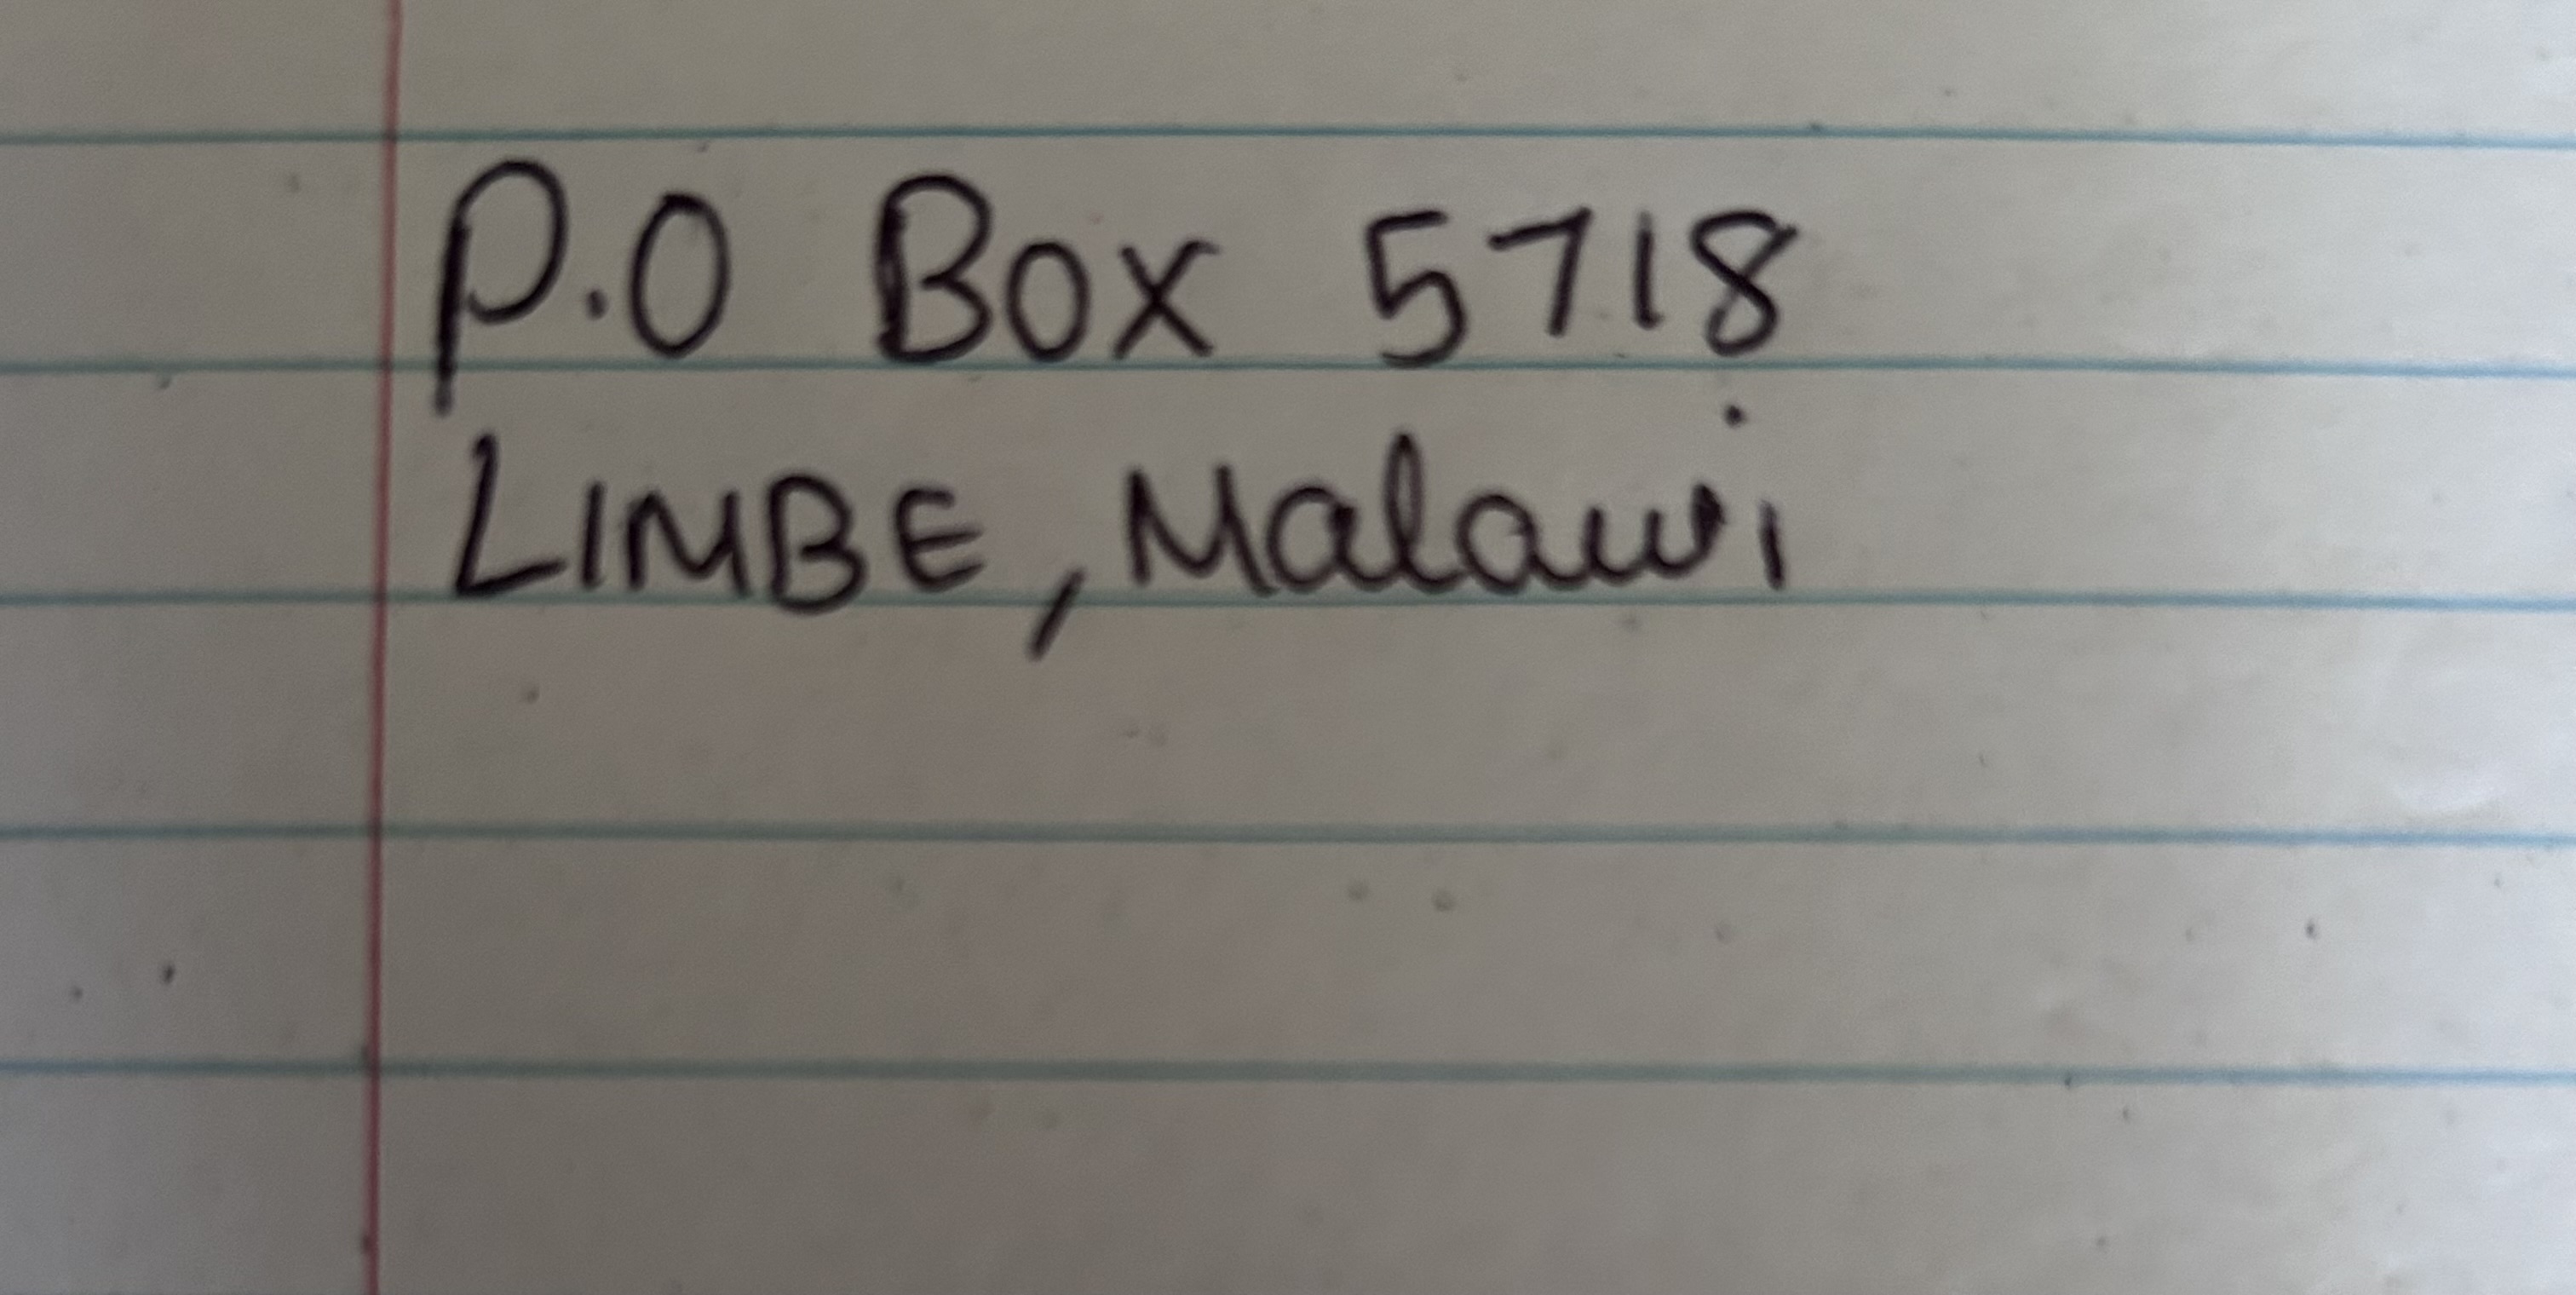 P.O Box 5718
LIMBE, Malawi